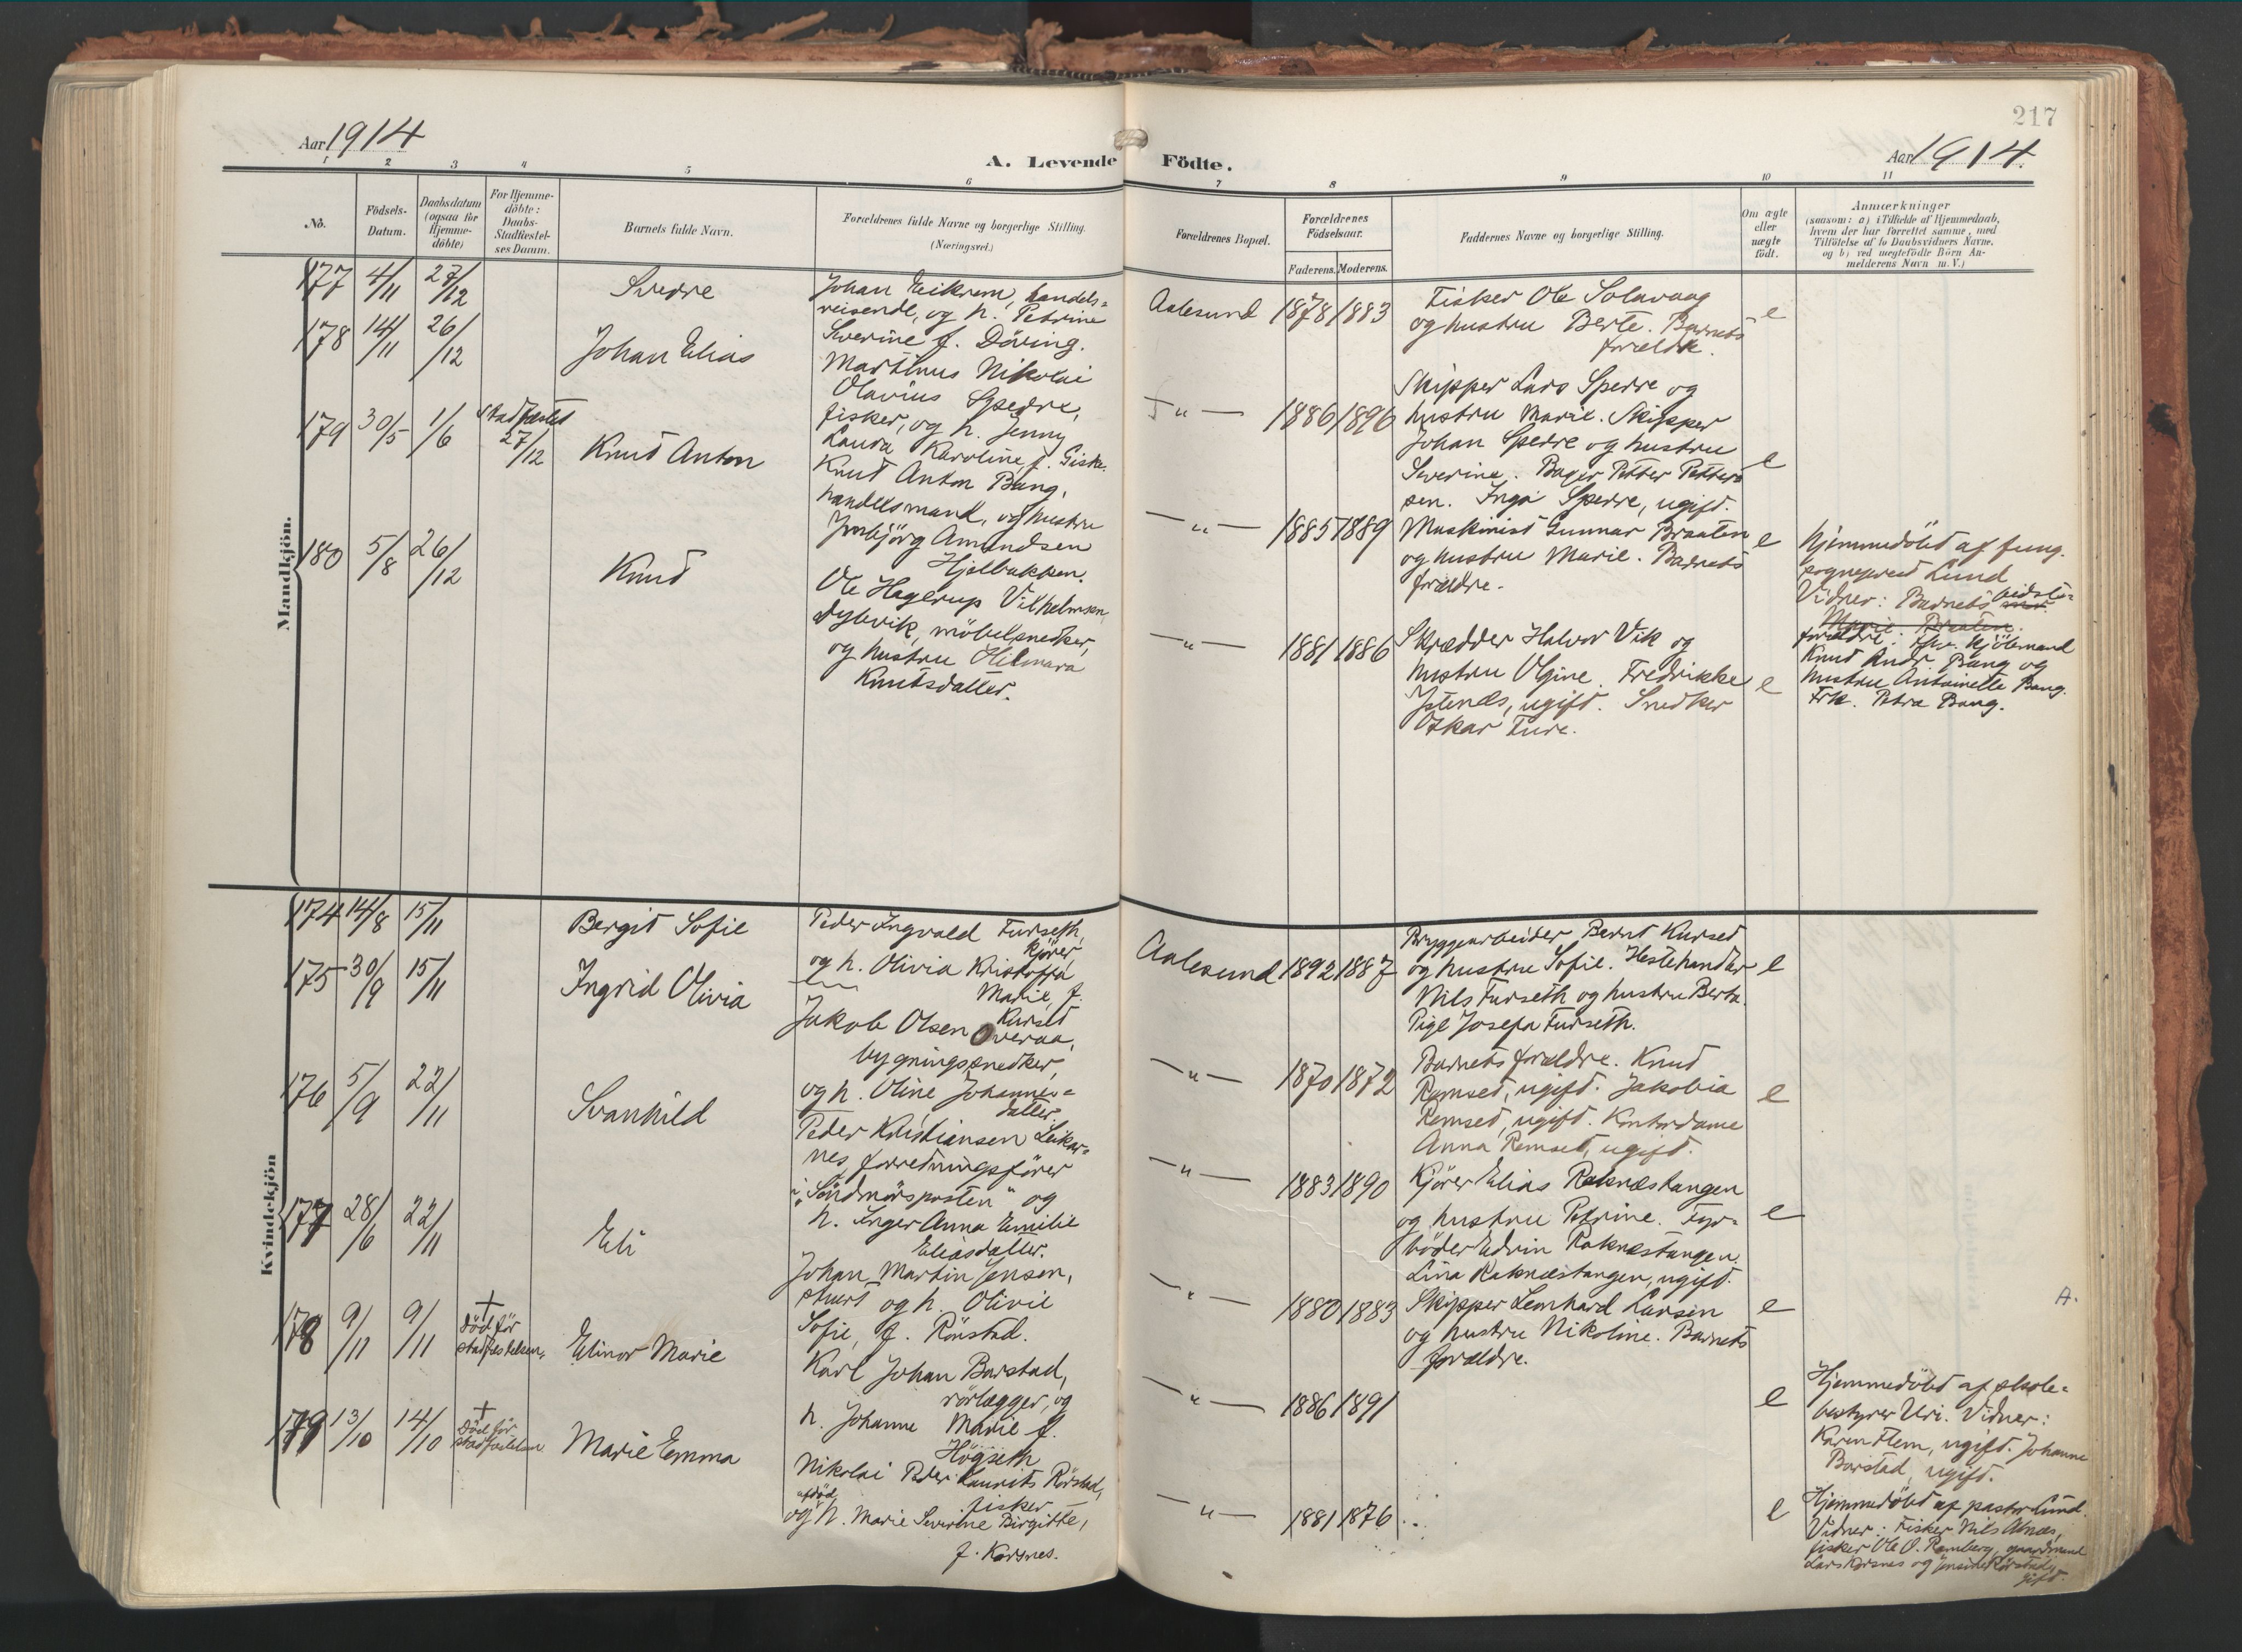 217
Aar 1914
A. Levende Födte.
Aar 1914.
1 2 3 4 5 6 7 8 9 10 11
No.
Födsels-
Datum.
Daabsdatum
(ogsaa for
Hjemme-
döbte)
For Hjemme-
döbte:
Daabs-
Stadfæstel-
ses Datum.
Barnets fulde Navn.
Forældrenes fulde Navne og borgerlige Stilling.
(Næringsvei.)
Forældrenes Bopæl.
Forældrenes
Födselsaar.
Faderens. Moderens.
Faddernes Navne og borgerlige Stilling.
Om ægte
eller
uægte
födt.
Anmærkninger
(saasom: a) i Tilfælde af Hjemmedaab,
hvem der har forrettet samme, med
Tilföielse af to Daabsvidners Navne,
og b) ved uegtefödte Börn An-
melderens Navn m. V.)
Mandkjön.
177 4/11 27/12
Sverre
Johan Eikrem, handels=
reisende, og h. Petrine
Severine f. Döving.
Aalesund 1878 1883
Fisker Ole Solavaag
og hustru Berte. Barnets
forældre.
e
178 14/11 26/12
Johan Elias
Martinus Nikolai
Olavius Sperre,
fisker, og h. Jenny
Laura Karoline f. Giske.
— " — 1886 1896
Skipper Lars Sperre og
hustru Marie. Skipper
Johan Sperre og hustru
Severine. Bager Petter Petter=
sen. Inga Sperre, ugift.
e
179 30/5 1/6 stadfæstet 27/12
Knut Anton
Knut Anton Bang,
handelsmand, og hustru
Ingbjörg Amundsen
Hjelbakken.
— " — 1885 1889
Maskinist Gunnar Braaten
og hustru Marie. Barnets
forældre.
e
Hjemmedöbt af fung.
sogneprest Lund
Vidner: Barnets bedste=
Marie Braaten.
forældre: fhv. kjöbmand
Knut Andr. Bang og
hustru Antoinette Bang.
Frk. Petra Bang.
180 5/8 26/12
Knut
Ole Hagerup Vilhelmsen
Dybvik, möbelsnedker,
og hustru Hilmara
Knutsdatter.
— " — 1881 1886
Skrædder Halvor Vik og
hustru Olgine. Fredrikke
Istenæs, ugift. Snedker
Oskar Ture.
e
Kvindekjön
174 14/8 15/11
Bergit Sofie
Peder Ingvald Furseth,
kjörer,
og h. Olivia Kristoffa
Marie, f.
Kurset
Aalesund 1892 1887
Bryggearbeider Bernt Kurset
og hustru Sofie. Hestehandler
Nils Furseth og hustru Berta.
Pige Josefa Furseth.
e
175 30/9 15/11
Ingrid Olivia
Jakob Olsen Overaa,
bygningssnedker,
og h. Oline Johannes=
datter.
— " — 1870 1872
Barnets forældre. Knut
Remset, ugift. Jakobia
Remset, ugift. Kontordame
Anna Remset, ugift.
e
176 5/9 22/11
Svanhild
Peder Kristiansen Leikar=
nes, forretningsförer
i "Söndmörsposten" og
h. Inger Anna Emilie
Eliasdatter.
— " — 1883 1890
Kjörer Elias Raknæstangen
og hustru Petrine. Fyr=
böder Edvin Raknæstangen.
Lina Raknæstangen, ugift.
e
177 28/6 22/11
Eli
Johan Martin Jensen,
stuert og h. Olivie
Sofie, f. Rönstad.
— " — 1880 1883
Skipper Leonhard Larsen
og hustru Nikoline. Barnets
forældre.
e
A.
178 9/11 9/11 † Död för stadfæstelsen.
Elinor Marie
Karl Johan Barstad,
rörlægger, og
h. Johanne Marie f.
Högseth
— " — 1886 1891
e
Hjemmedöbt af skole=
bestyrer Uri. Vidner:
Karen Flem, ugift. Johanne
Barstad, ugift.
179 13/10 14/10 † Död för stadfæstelsen
Marie Emma
Nikolai Peder Laurits Rörstad,
fisker
og afdöd h. Marie Severine Birgitte,
f. Korsnes.
— " — 1881 1876
e
Hjemmedöbt af pastor Lund.
Vidner: Fisker Nils Alnæs,
fisker Ole O. Ramberg, gaardmand
Lars Korsnes og Rörstad,
gift.